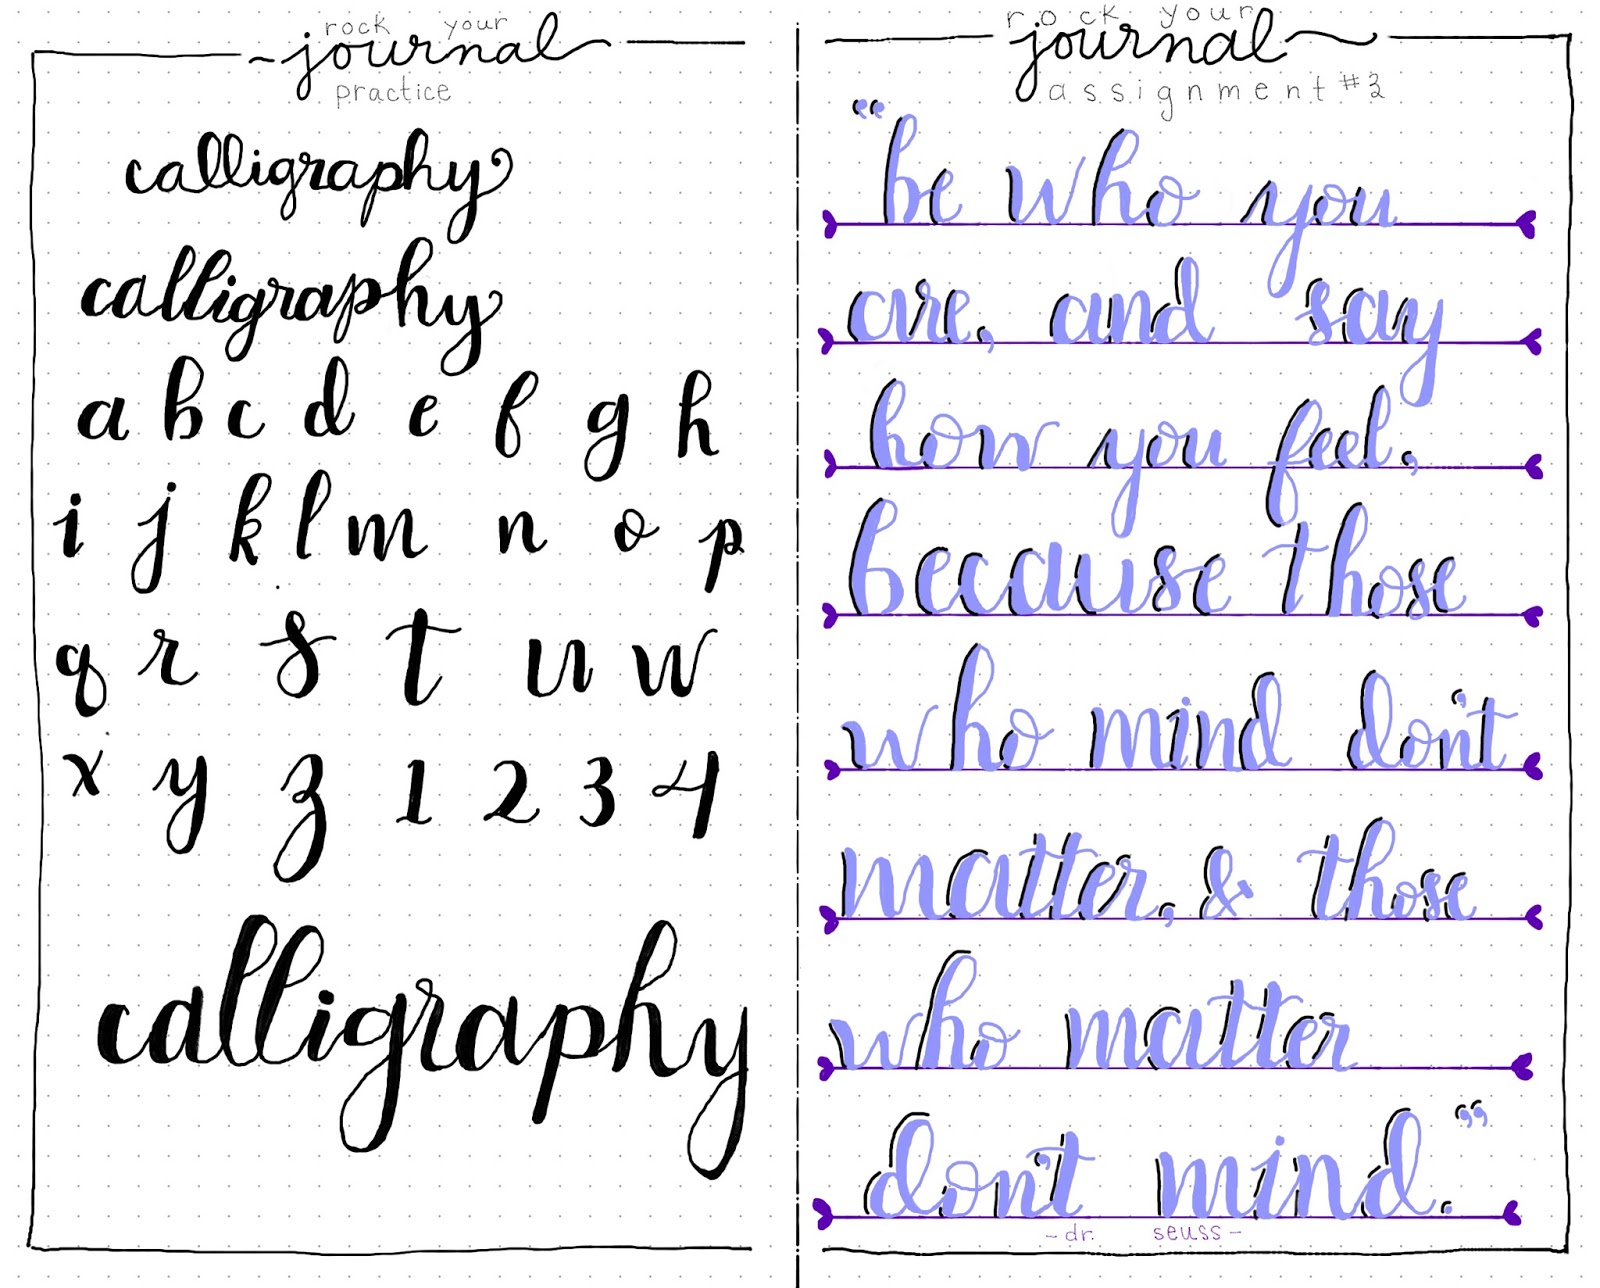 rock your
journal
practice
calligraphy
calligraphy
a b c d e f g h
i j k l m n o p
q r s t u w
x y z 1 2 3 4
calligraphy
rock your
journal
assignment #3
“be who you
are, and say
how you feel,
because those
who mind don't
matter, & those
who matter
don't mind.”
- dr. seuss -